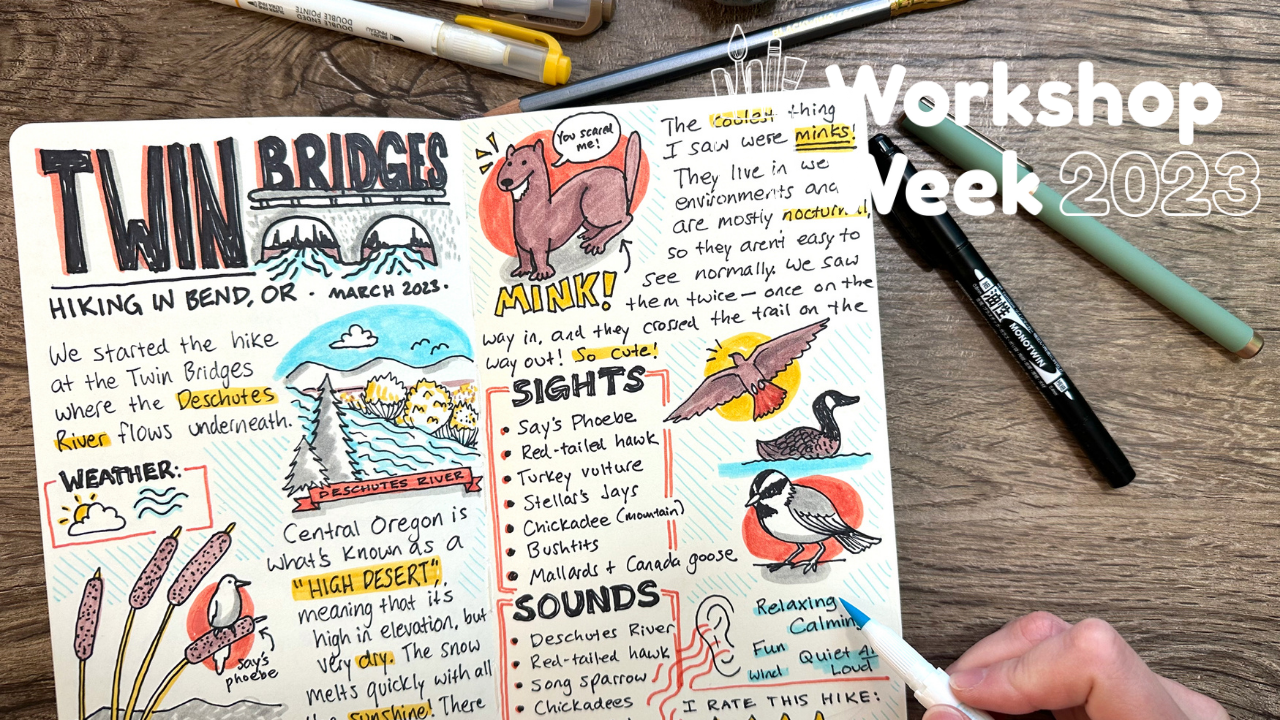 DOUBLE ENDED
DOUBLE POINTE
Workshop
Week 2023
油性
MONOTWIN
TWIN
BRIDGES
HIKING IN BEND, OR · MARCH 2023 ·
We started the hike
at the Twin Bridges
where the Deschutes
River flows underneath.
WEATHER:
DESCHUTES RIVER
Say's
phoebe
Central Oregon is
what's known as a
"HIGH DESERT",
meaning that it's
high in elevation, but
very dry. The snow
melts quickly with all
the sunshine! There
You scared
me!
MINK!
The coolest thing
I saw were minks!
They live in we
environments and
are mostly nocturnal,
so they aren't easy to
see normally. We saw
them twice — once on the
way in, and they crossed the trail on the
way out! So cute!
SIGHTS
• Say's Phoebe
• Red-tailed hawk
• Turkey vulture
• Stellar's Jays
• Chickadee (mountain)
• Bushtits
• Mallards + Canada goose
SOUNDS
• Deschutes River
• Red-tailed hawk
• Song sparrow
• Chickadees
Relaxing
Calming
Fun
Quiet
Wind
Loud
I RATE THIS HIKE: